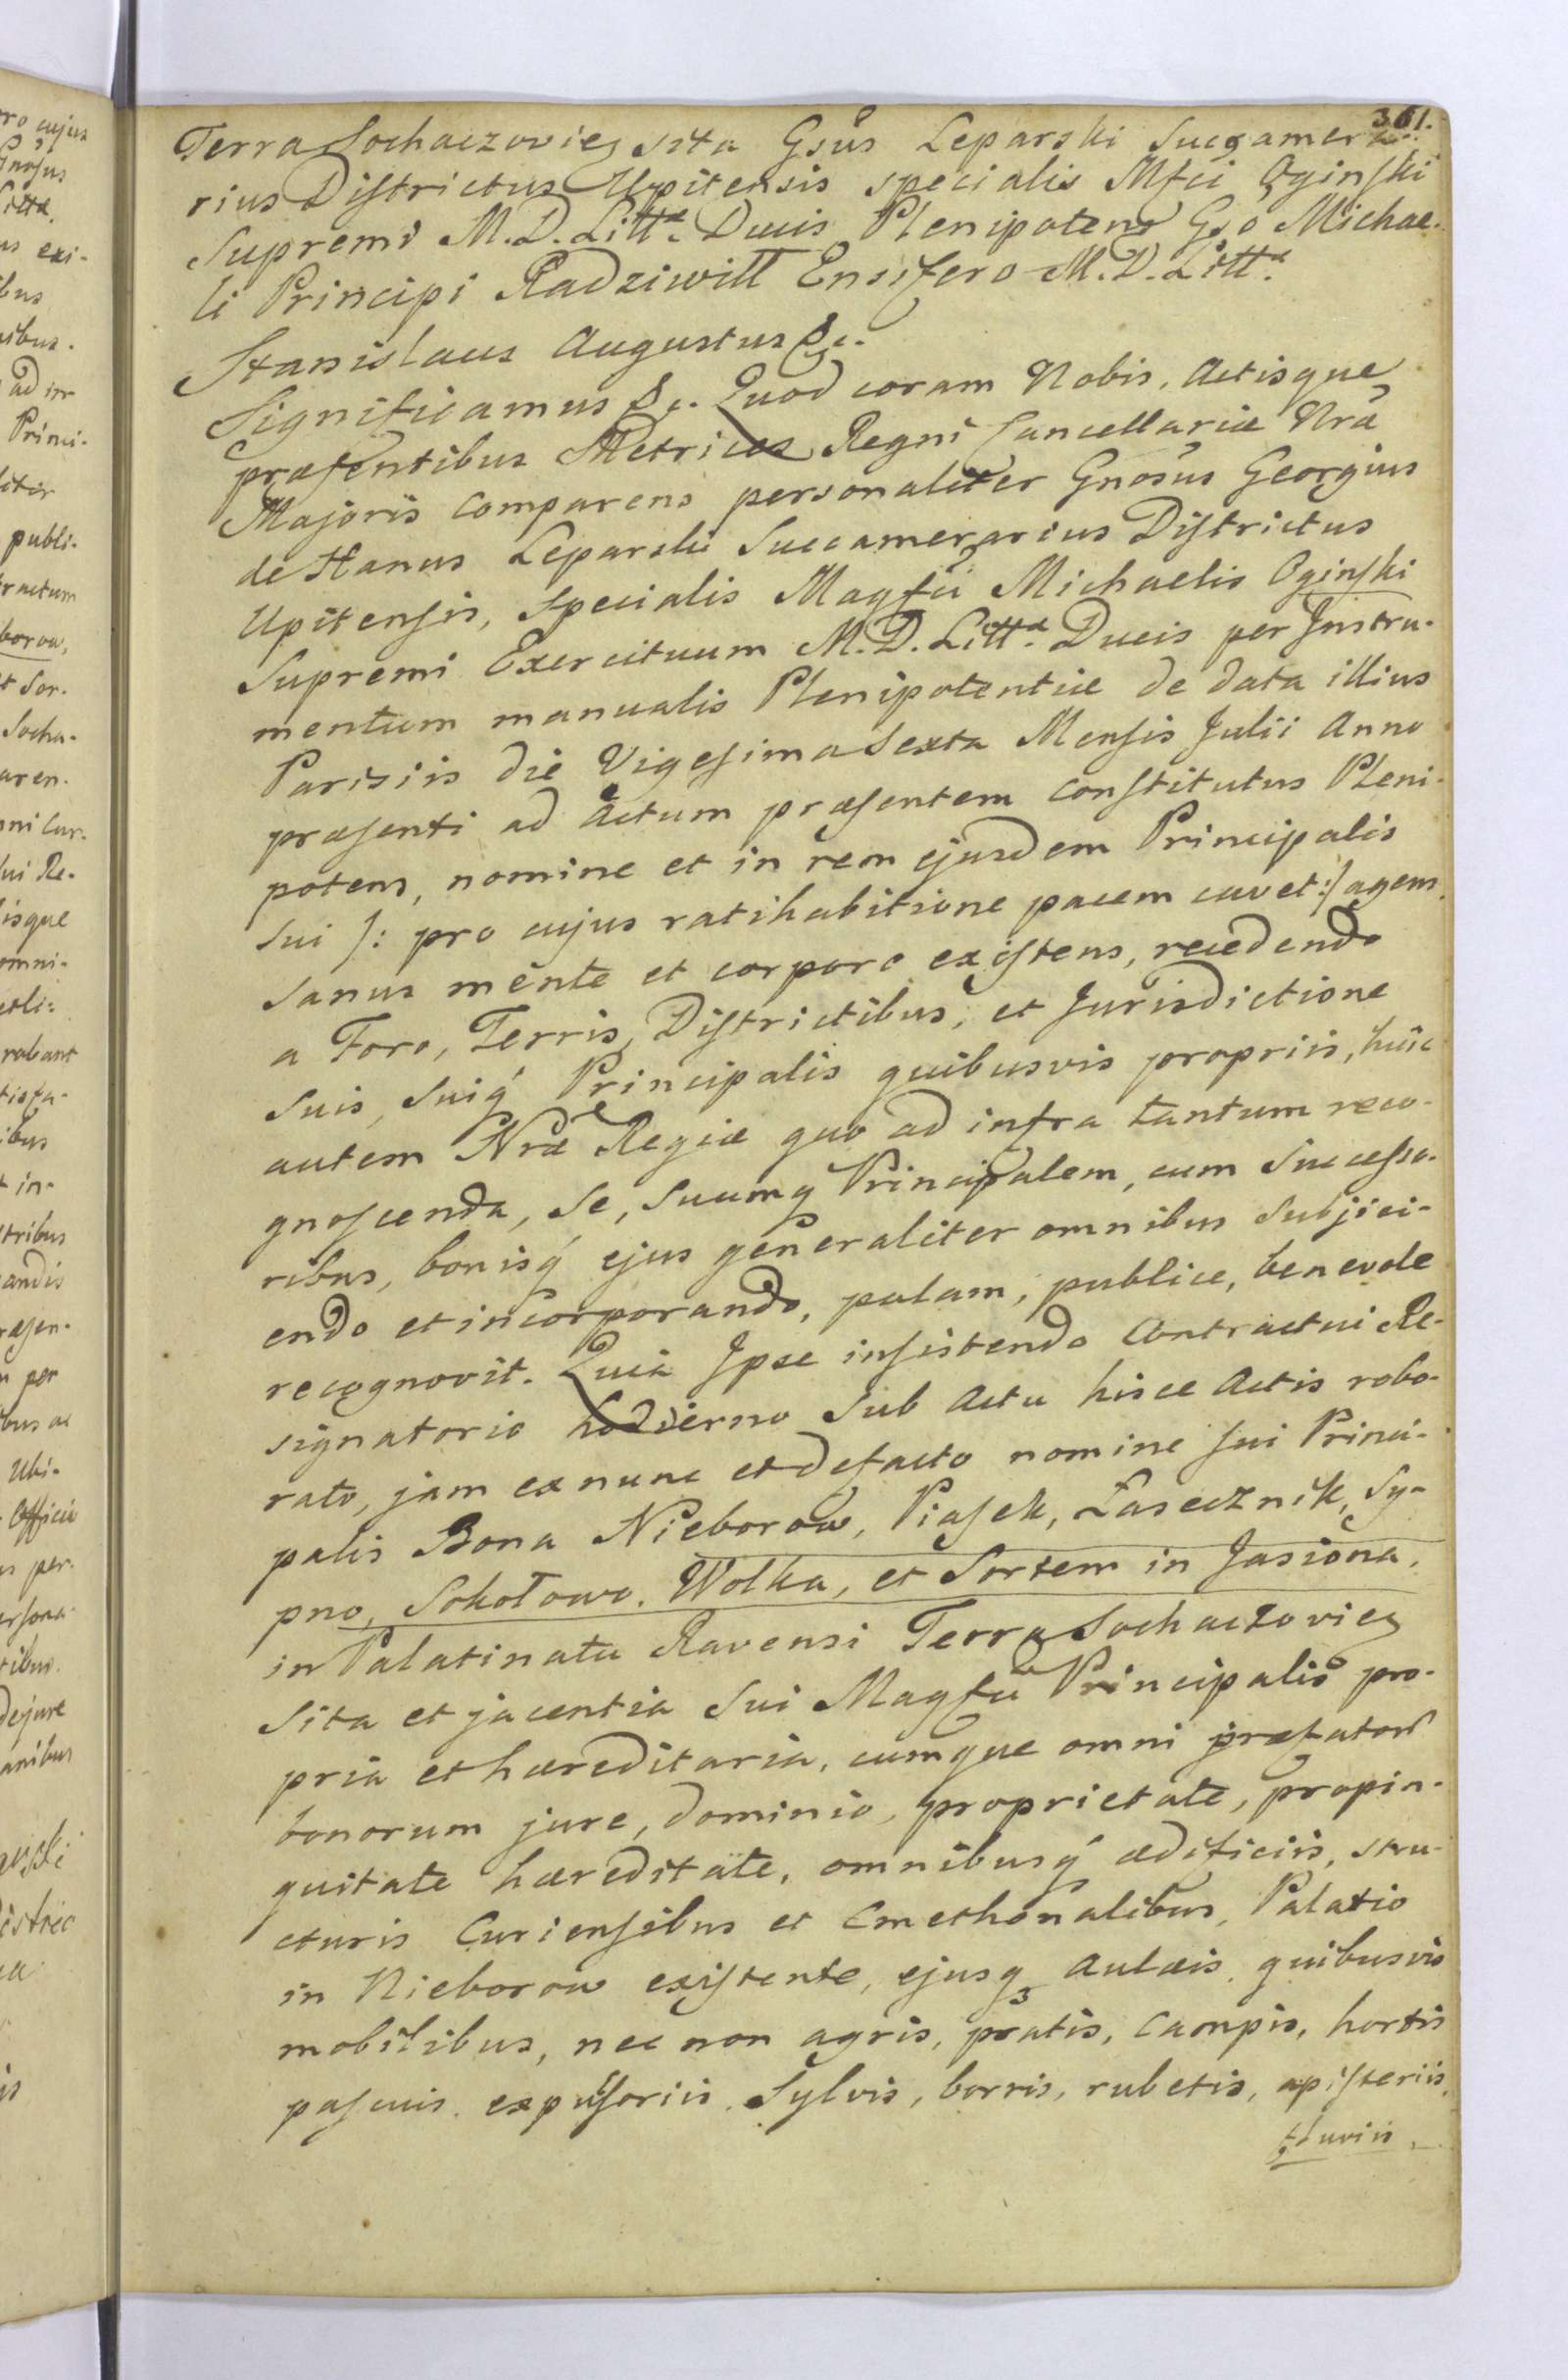 361.
Terra Sochaczovien sita Gsus Leparski Succamera-
rius Districtus Upitensis specialis Mfci Oginski
Supremi M.D.Litt. Ducis Plenipotens Gso Michae-
li Principi Radziwill Ensifero M.D.Litt.
Stanislaus Augustus &c.
Significamus &c. Quod coram Nobis, Actisque
præsentibus Metrices Regni Cancellariæ Nræ
Majoris comparens personaliter Gnosus Georgius
de Hanus Leparski Succamerarius Districtus
Upitensis, specialis Magfci Michaelis Oginski
Supremi Exercituum M.D.Litt. Ducis per Instru-
mentum manualis Plenipotentiæ de data illius
Parisiis die Vigesima Sexta Mensis Julii Anno
præsenti ad Actum præsentem constitutus Pleni-
potens, nomine et in rem ejusdem Principalis
sui /: pro cujus ratihabitione pacem cavet :/ agens
sanus mente et corpore existens, recedendo
a Foro, Terris, Districtibus, et Jurisdictione
suis, suiq Principalis quibusvis propriis, huic
autem Nræ Regiæ quo ad infra tantum reco-
gnoscenda, se, suumq Principalem, cum successo-
ribus, bonisq ejus generaliter omnibus subjici-
endo et incorporando, palam, publice, benevole
recognovit. Quia Ipse insistendo Contractui Re-
signatorio hodierno sub Actu hisce Actis robo-
rato, jam ex nunc et defacto nomine sui Princi-
palis Bona Nieborow, Piasek, Łasecznik, Sy-
pno, Sokołowo. Wolka, et Sortem in Jasiona,
in Palatinatu Ravensi Terra Sochaczovien
sita et jacentia sui Magfci Principalis pro-
pria et hæreditaria, cumque omni præfator
bonorum jure, dominio, proprietate, propin-
quitate hæreditate, omnibusq ædificiis, stru-
cturis Curiensibus et Cmethonalibus, Palatio
in Nieborow existente, ejusq aulæis, quibusvis
mobilibus, nec non agris, pratis, campis, hortis
pascuis, expulsoriis, Sylvis, borris, rubetis, apisteriis,
fluviis,